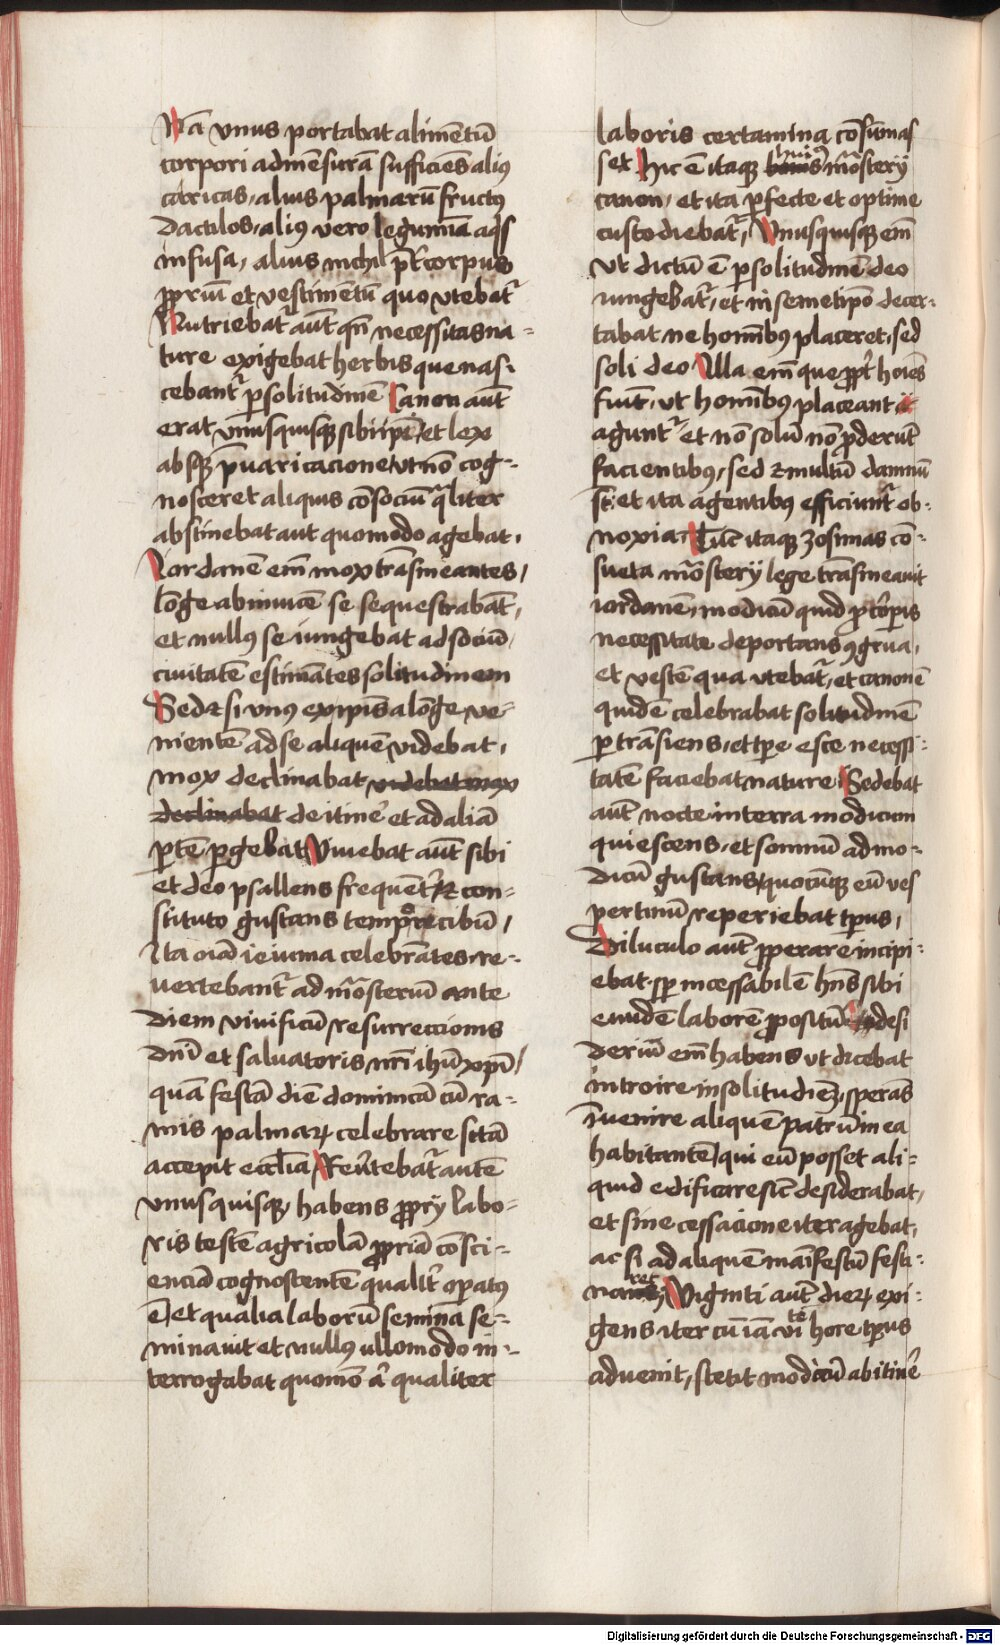 Nā vnus portabat alimētū
corpori ad mēsurā sufficiēs aliꝰ
caricas, alius palmarū fructꝰ
dactilos, alius vero legumīa aqis
infusa, alius nichil p̄ter corpus
ꝓpriū et vestimētū quo vtebat᷑
Nutriebat᷑ aūt qn̄ necessitas na-
ture exigebat herbis que nas-
cebant᷑ ꝑ solitudinē Canon aūt
erat vnusquisqꝫ sibi ip̄i, et lex
absqꝫ p̄uaricacione vt nō cog-
nosceret aliquis cōsociū q̄liter
abstinebat aut quomodo agebat.
Iordanē em̄ mox trāsmeantes,
lōge abinuicē se sequestrabāt,
et nullꝰ se iungebat ad sociū,
ciuitatē estimātes solitudinem
Sed et si vnꝰ ex ip̄is a lōge ve-
nientē ad se aliquē videbat,
mox declinabat videbat mox
declinabat de itine᷑ et ad aliā
ꝑtē ꝑgebat Viuebat aūt sibi
et deo psallens frequēt᷑ et con-
stituto gustans tempore cibū,
Ita oīa ieiunia celebrātes re-
uertebant᷑ ad mōsteriū ante
diem viuificū resurreccionis
dn̄i et saluatoris nr̄i ihū xp̄i,
quā festā diē dominicā cū ra-
mis palmaꝝ celebrare sctā
accepit eccl̄ia Reu᷑tebat᷑ autē
vnusquisqꝫ habens ꝓprij labo-
ris testē agricolā ꝓpriā cōsci-
enciā cognoscentē qualit᷑ oꝑatꝰ
ē, et qualia laborū semina se-
minauit et nullꝰ ullomodo in-
terrogabat quomō a᷑ qualiter
laboris certamina cōsūmas
set Hic ē itaqꝫ huiꝰ mōsterij
canon, et ita ꝑfecte et optime
custodiebat᷑, Vnusquisqꝫ em̄
vt dictū ē ꝑ solitudinē deo
iungebat᷑, et in semetip̄o decer-
tabat ne hominibꝰ placeret, sed
soli deo Illa em̄ que ꝓpt᷑ hoīes
fiūt, vt hominibꝰ placeant
agunt᷑ et nō solū nō ꝓderūt
facientibꝰ, sed et multū damnū
st̄, et ita agentibꝰ efficiunt᷑ ob-
noxia, Tūc itaqꝫ zosimas cō-
sueta mōsterij lege trāsmeauit
iordanē, modicū quid ꝓ corꝑis
necessitate deportans ꝯgrua,
et vestē qua vtebat᷑, et canonē
quidē celebrabat solitudinē
ꝑtrāsiens, et tꝑe esce necessi-
tatē faciebat nature Sedebat
aūt nocte in terra modicum
quiescens, et somnū ad mo-
dicū gustans, quocūqꝫ eū ves
pertinū reperiebat tꝑus,
Diluculo aūt ꝓperare incipi-
ebat, sꝑ incessabilē hn̄s sibi
eundē laborē ꝓpositū desi
deriū em̄ habens vt dicebat
introire in solitudinē, sperās
īuenire aliquē patrū in ea
habitantē, qui eū posset ali-
quid edificare sic̄ desiderabat,
et sine cessacione iter agebat,
ac si ad aliquē māifestū festi-
naret, Viginti aūt dieꝝ exi-
gens iter cū iā vi te hore tꝑus
aduenit, stetit modicū ab itine᷑
Digitalisierung gefördert durch die Deutsche Forschungsgemeinschaft - DFG